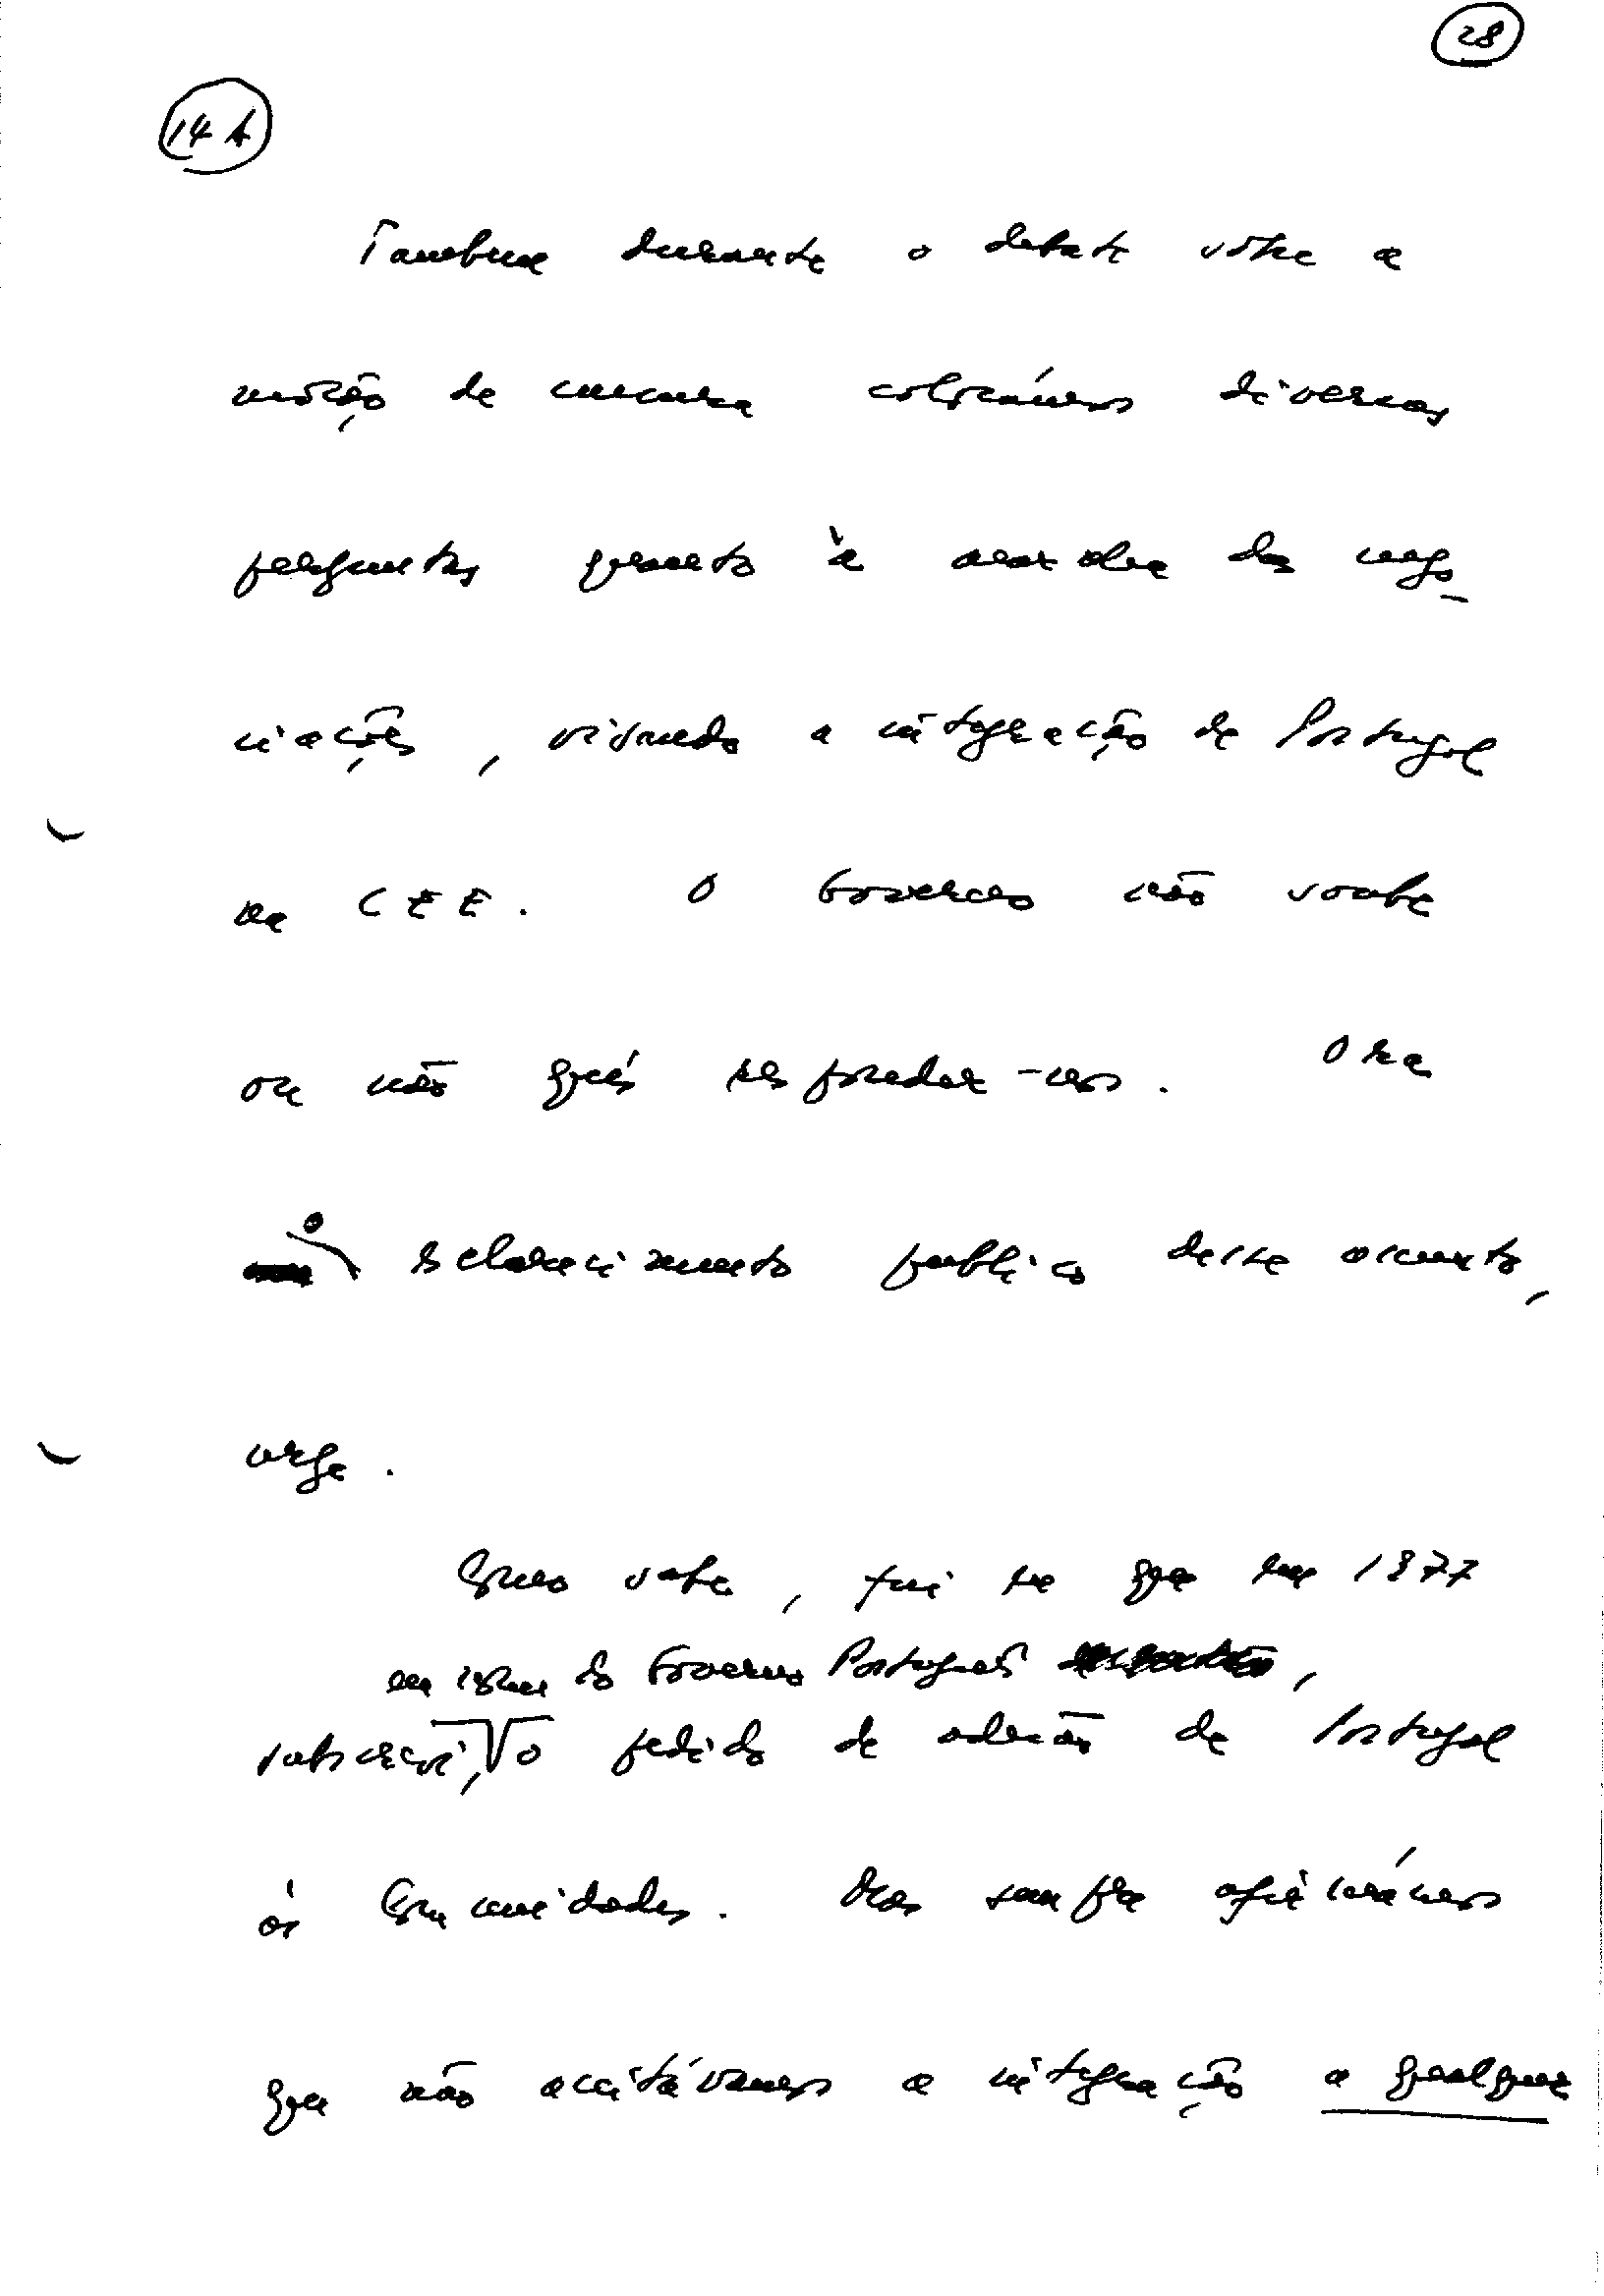 28
14 A
Tambem durante o debate sobre a
moção de censura colocámos diversas
perguntas quanto à marcha das nego_
ciações, visando a integração de Portugal
na CEE. O Governo não soube
ou não quis responder-nos. Ora
o esclarecimento publico deste assunto,
urge.
Como sabe, fui eu que em 1977
em nome do Governo Português,
subscrevi, o pedido de adesão de Portugal
ás Comunidades. Mas sempre afirmámos
que não aceitávamos a integração a qualquer